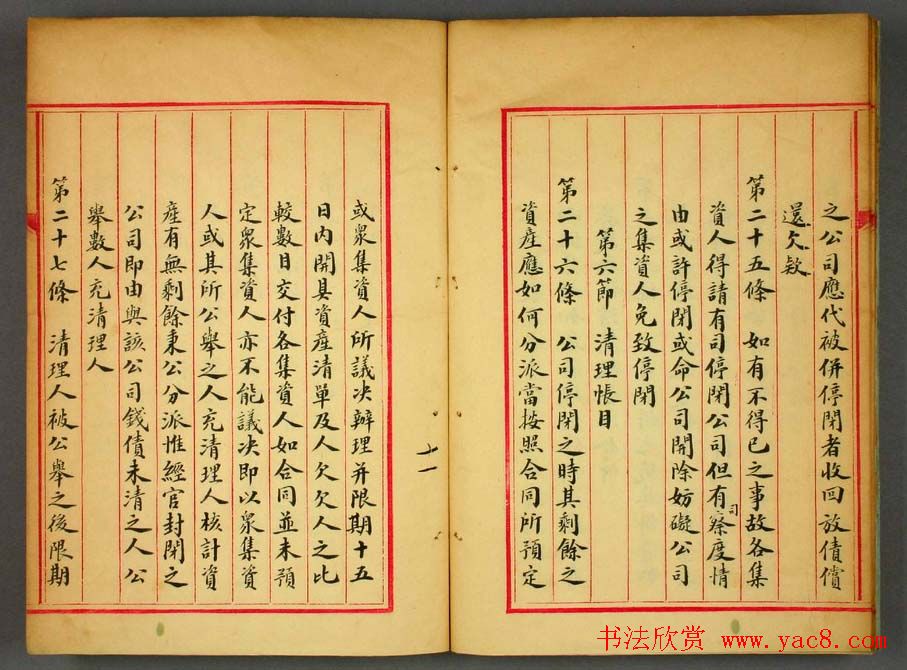 之公司應代被併停閉者收回放債償
還欠欵
第二十五條 如有不得已之事故各集
資人得請有司停閉公司但有司察度情
由或許停閉或命公司開除妨礙公司
之集資人免致停閉
第六節 清理帳目
第二十六條 公司停閉之時其剩餘之
資產應如何分派當按照合同所預定
十一
或衆集資人所議决辦理并限期十五
日内開具資產清單及人欠欠人之比
較數目交付各集資人如合同並未預
定衆集資人亦不能議决即以衆集資
人或其所公舉之人充清理人核計資
產有無剩餘秉公分派惟經官封閉之
公司即由與該公司錢債未清之人公
舉數人充清理人
第二十七條 清理人被公舉之後限期
书法欣赏 www.yac8.com